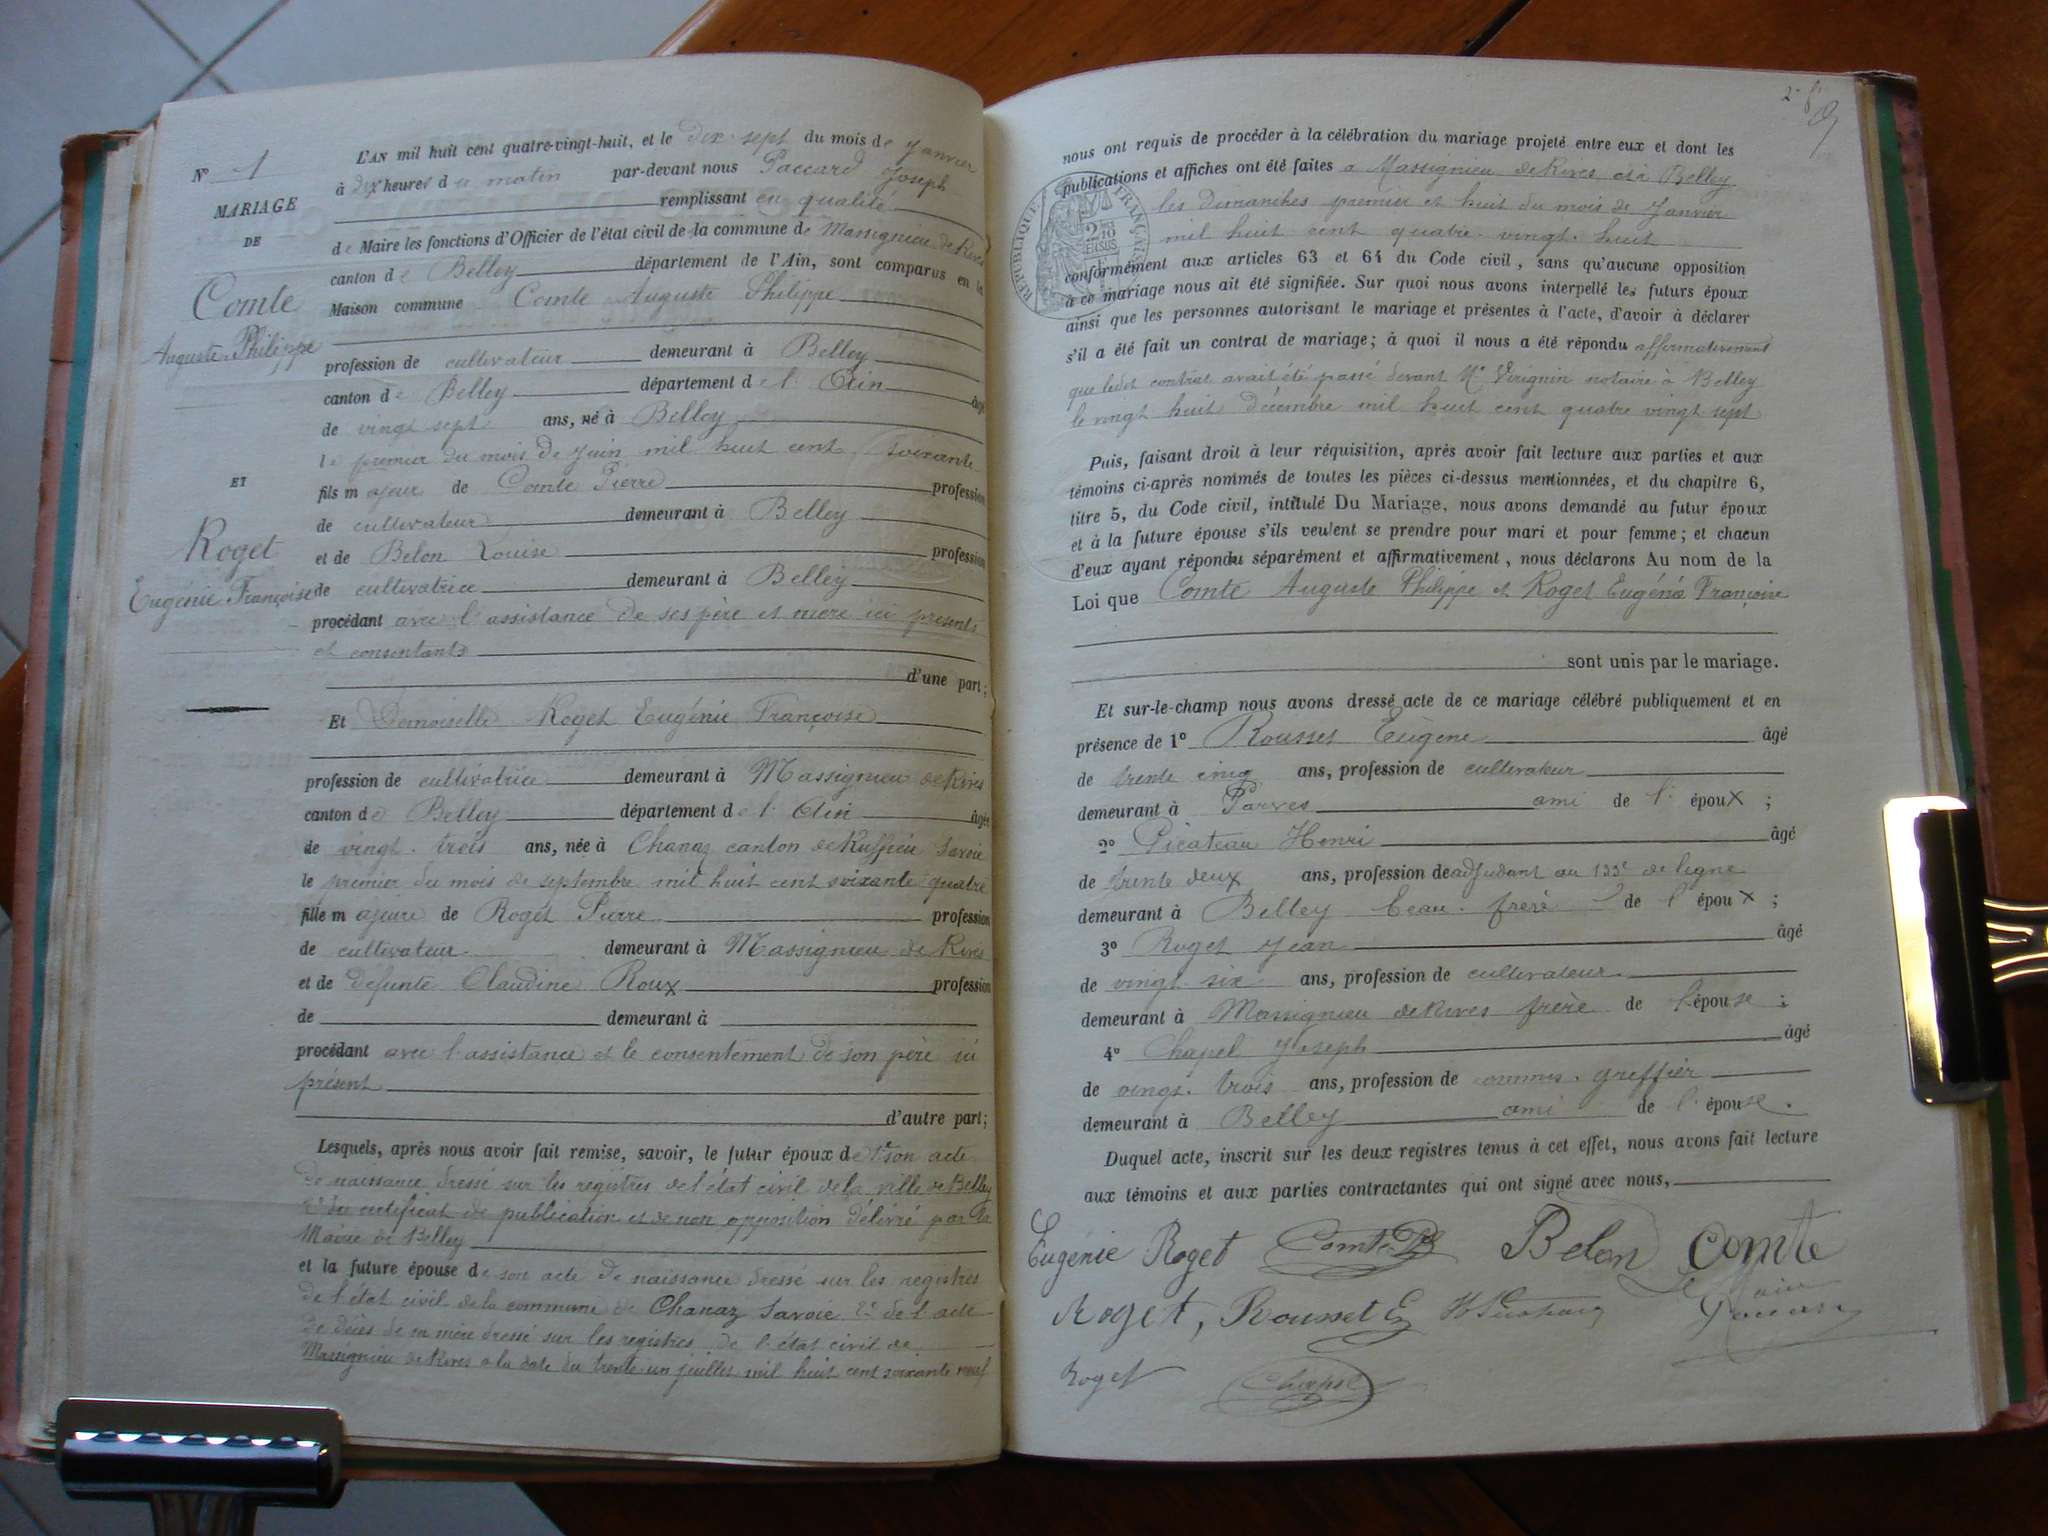 N° 1
MARIAGE
DE
Comte
Auguste Philippe
ET
Roget
Eugénie Françoise
L'AN mil huit cent quatre-vingt-huit, et le dix-sept du mois de Janvier
à dix heures du matin par-devant nous Paccard Joseph
remplissant en qualité
de Maire les fonctions d'Officier de l'état civil de la commune de Massignieu de Rives
canton de Belley département de l'Ain, sont comparus en la
Maison commune Comte Auguste Philippe
profession de cultivateur demeurant à Belley
canton de Belley département de l'Ain âgé
de vingt sept ans, né à Belley
le premier du mois de Juin mil huit cent soixante
fils majeur de Comte Pierre profession
de cultivateur demeurant à Belley
et de Belon Louise profession
de cultivatrice demeurant à Belley
procédant avec l'assistance de ses père et mère ici présents
et consentants
d'une part;
Et Demoiselle Roget Eugénie Françoise
profession de cultivatrice demeurant à Massignieu de Rives
canton de Belley département de l'Ain âgée
de vingt-trois ans, née à Chanaz canton de Ruffieu Savoie
le premier du mois de septembre mil huit cent soixante quatre
fille majeure de Roget Pierre profession
de cultivateur demeurant à Massignieu de Rives
et de défunte Claudine Roux profession
de demeurant à
procédant avec l'assistance et le consentement de son père ici
présent
d'autre part;
Lesquels, après nous avoir fait remise, savoir, le futur époux de 1° son acte
de naissance dressé sur les registres de l'état civil de la ville de Belley
2° du certificat de publication et de non opposition délivré par la
Mairie de Belley
et la future épouse de son acte de naissance dressé sur les registres
de l'état civil de la commune de Chanaz Savoie 2° de l'acte
de décès de sa mère dressé sur les registres de l'état civil de
Massignieu de Rives à la date du trente un juillet mil huit cent soixante neuf
nous ont requis de procéder à la célébration du mariage projeté entre eux et dont les
publications et affiches ont été faites à Massignieu de Rives et à Belley
les dimanches premier et huit du mois de Janvier
mil huit cent quatre-vingt-huit
conformément aux articles 63 et 64 du Code civil, sans qu'aucune opposition
à ce mariage nous ait été signifiée. Sur quoi nous avons interpellé les futurs époux
ainsi que les personnes autorisant le mariage et présentes à l'acte, d'avoir à déclarer
s'il a été fait un contrat de mariage; à quoi il nous a été répondu affirmativement
que ledit contrat avait été passé devant Me Virignin notaire à Belley
le vingt huit décembre mil huit cent quatre vingt sept
Puis, faisant droit à leur réquisition, après avoir fait lecture aux parties et aux
témoins ci-après nommés de toutes les pièces ci-dessus mentionnées, et du chapitre 6,
titre 5, du Code civil, intitulé Du Mariage, nous avons demandé au futur époux
et à la future épouse s'ils veulent se prendre pour mari et pour femme; et chacun
d'eux ayant répondu séparément et affirmativement, nous déclarons Au nom de la
Loi que Comte Auguste Philippe et Roget Eugénie Françoise
sont unis par le mariage.
Et sur-le-champ nous avons dressé acte de ce mariage célébré publiquement et en
présence de 1° Rousset Eugène âgé
de trente cinq ans, profession de cultivateur
demeurant à Parves ami de l'époux;
2° Picateau Henri âgé
de trente deux ans, profession de adjudant au 133e de ligne
demeurant à Belley beau-frère de l'époux;
3° Roget Jean âgé
de vingt six ans, profession de cultivateur
demeurant à Massignieu de Rives frère de l'épouse;
4° Chapel Joseph âgé
de vingt-trois ans, profession de commis-greffier
demeurant à Belley ami de l'épouse.
Duquel acte, inscrit sur les deux registres tenus à cet effet, nous avons fait lecture
aux témoins et aux parties contractantes qui ont signé avec nous,
Eugénie Roget Comte Belon Comte
Roget, Rousset E Le Maire
Paccard
Roget Chapel
RÉPUBLIQUE FRANÇAISE